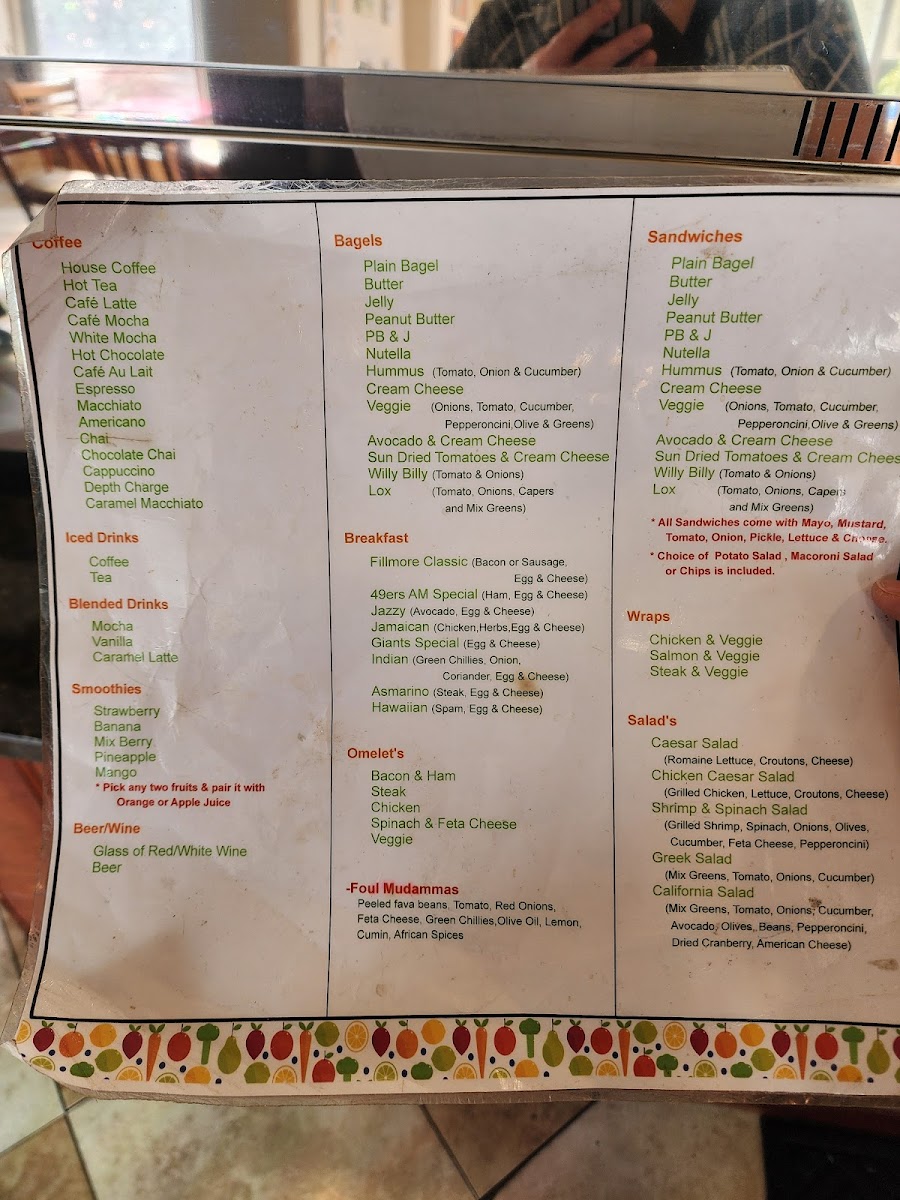 Coffee
House Coffee
Hot Tea
Café Latte
Café Mocha
White Mocha
Hot Chocolate
Café Au Lait
Espresso
Macchiato
Americano
Chai
Chocolate Chai
Cappuccino
Depth Charge
Caramel Macchiato
Iced Drinks
Coffee
Tea
Blended Drinks
Mocha
Vanilla
Caramel Latte
Smoothies
Strawberry
Banana
Mix Berry
Pineapple
Mango
* Pick any two fruits & pair it with
Orange or Apple Juice
Beer/Wine
Glass of Red/White Wine
Beer
Bagels
Plain Bagel
Butter
Jelly
Peanut Butter
PB & J
Nutella
Hummus (Tomato, Onion & Cucumber)
Cream Cheese
Veggie (Onions, Tomato, Cucumber,
Pepperoncini,Olive & Greens)
Avocado & Cream Cheese
Sun Dried Tomatoes & Cream Cheese
Willy Billy (Tomato & Onions)
Lox (Tomato, Onions, Capers
and Mix Greens)
Breakfast
Fillmore Classic (Bacon or Sausage,
Egg & Cheese)
49ers AM Special (Ham, Egg & Cheese)
Jazzy (Avocado, Egg & Cheese)
Jamaican (Chicken,Herbs,Egg & Cheese)
Giants Special (Egg & Cheese)
Indian (Green Chillies, Onion,
Coriander, Egg & Cheese)
Asmarino (Steak, Egg & Cheese)
Hawaiian (Spam, Egg & Cheese)
Omelet's
Bacon & Ham
Steak
Chicken
Spinach & Feta Cheese
Veggie
-Foul Mudammas
Peeled fava beans, Tomato, Red Onions,
Feta Cheese, Green Chillies,Olive Oil, Lemon,
Cumin, African Spices
Sandwiches
Plain Bagel
Butter
Jelly
Peanut Butter
PB & J
Nutella
Hummus (Tomato, Onion & Cucumber)
Cream Cheese
Veggie (Onions, Tomato, Cucumber,
Pepperoncini,Olive & Greens)
Avocado & Cream Cheese
Sun Dried Tomatoes & Cream Chees
Willy Billy (Tomato & Onions)
Lox (Tomato, Onions, Capers
and Mix Greens)
* All Sandwiches come with Mayo, Mustard,
Tomato, Onion, Pickle, Lettuce & Cheese.
* Choice of Potato Salad , Macoroni Salad
or Chips is included.
Wraps
Chicken & Veggie
Salmon & Veggie
Steak & Veggie
Salad's
Caesar Salad
(Romaine Lettuce, Croutons, Cheese)
Chicken Caesar Salad
(Grilled Chicken, Lettuce, Croutons, Cheese)
Shrimp & Spinach Salad
(Grilled Shrimp, Spinach, Onions, Olives,
Cucumber, Feta Cheese, Pepperoncini)
Greek Salad
(Mix Greens, Tomato, Onions, Cucumber)
California Salad
(Mix Greens, Tomato, Onions, Cucumber,
Avocado, Olives, Beans, Pepperoncini,
Dried Cranberry, American Cheese)